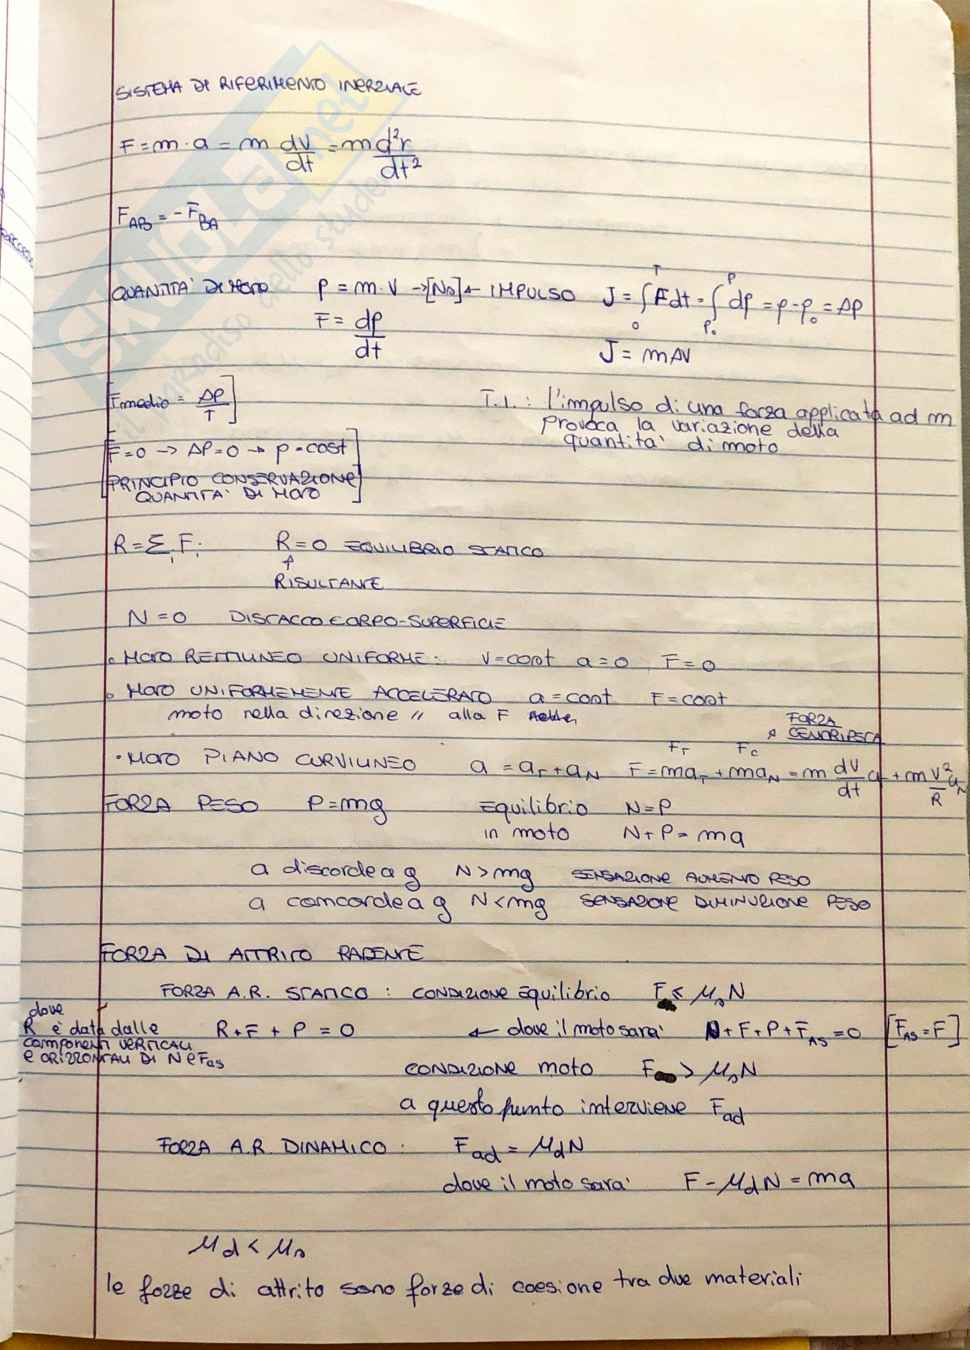 SISTEMA DI RIFERIMENTO INERZIALE
F = m · a = m dv/dt = m d²r/dt²
F_AB = - F_BA
QUANTITA' DI MOTO p = m · v → [Ns] ← IMPULSO J = ∫₀ᵀ F dt = ∫_{p₀}^{p} dp = p - p₀ = Δp
F = dp/dt J = mΔv
[Fmedio = Δp/T]
T.I.: l'impulso di una forza applicata ad m
provoca la variazione della
quantita' di moto
[F = 0 → Δp = 0 → p = cost
PRINCIPIO CONSERVAZIONE
QUANTITA' DI MOTO]
R = Σ_i F_i R = 0 EQUILIBRIO STATICO
↑
RISULTANTE
N = 0 DISTACCO CORPO-SUPERFICIE
• MOTO RETTILINEO UNIFORME: v = cost a = 0 F = 0
• MOTO UNIFORMEMENTE ACCELERATO a = cost F = cost
moto nella direzione // alla F
FORZA
CENTRIPETA
F_T F_c
• MOTO PIANO CURVILINEO a = a_T + a_N F = ma_T + ma_N = m dv/dt u_T + m v²/R u_N
FORZA PESO P = mg Equilibrio N = P
in moto N + P = ma
a discorde a g N > mg SENSAZIONE AUMENTO PESO
a concorde a g N < mg SENSAZIONE DIMINUZIONE PESO
FORZA DI ATTRITO RADENTE
FORZA A.R. STATICO : CONDIZIONE Equilibrio F ≤ μ_s N
dove
R è data dalle
componenti VERTICALI
e ORIZZONTALI DI N e Fas
R + F + P = 0 ← dove il moto sara' N + F + P + F_AS = 0 [F_AS = F]
CONDIZIONE moto F > μ_s N
a questo punto interviene F_ad
FORZA A.R. DINAMICO : F_ad = μ_d N
dove il moto sara' F - μ_d N = ma
μ_d < μ_s
le forze di attrito sono forze di coesione tra due materiali